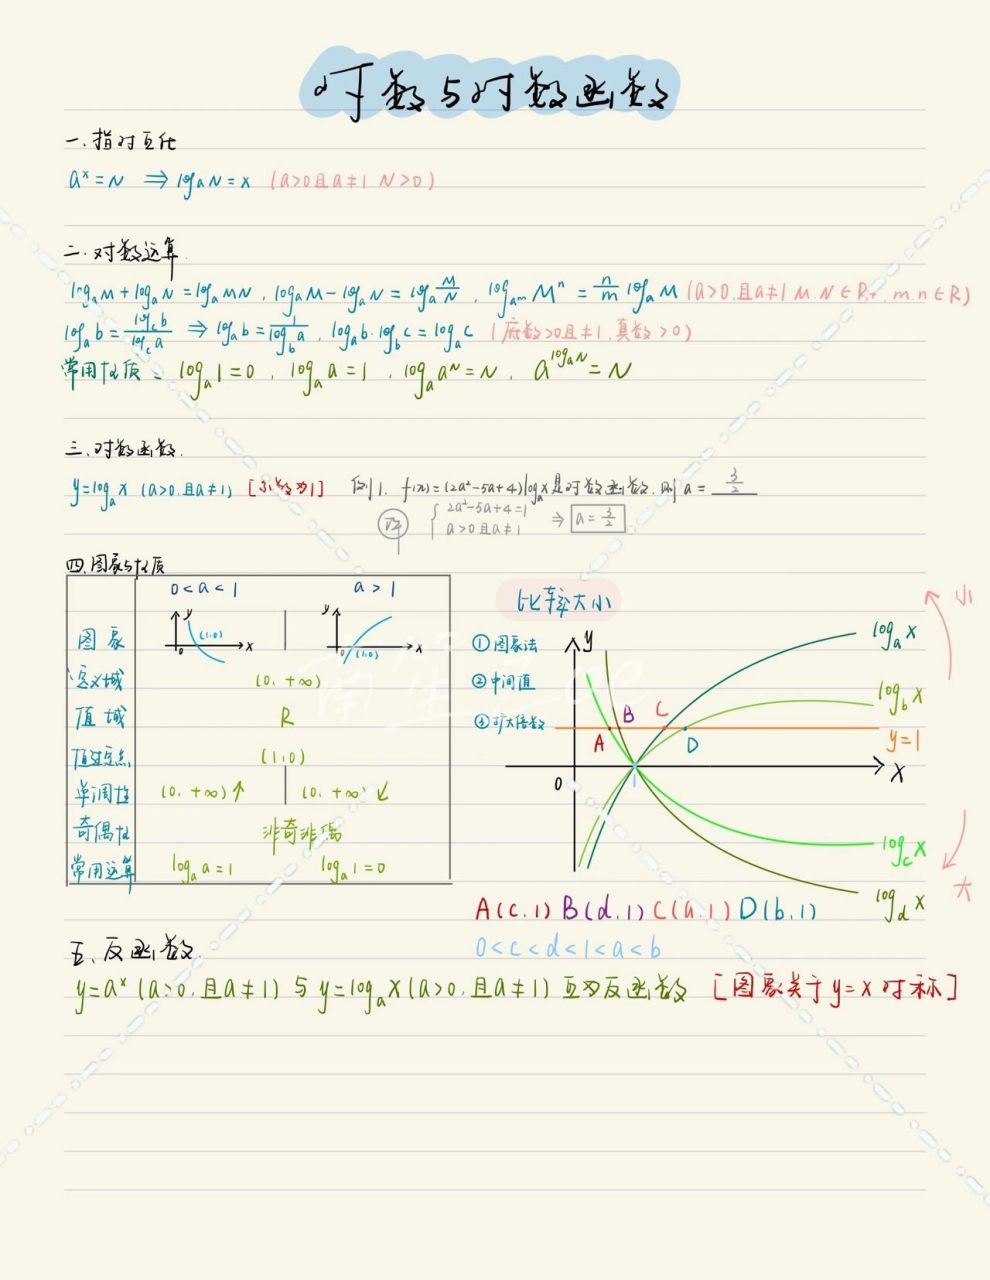 对数与对数函数
一.指对互化
aˣ=N ⇒ logₐN=x (a>0且a≠1 N>0)
二.对数运算.
logₐM+logₐN=logₐMN, logₐM-logₐN=logₐ\frac{M}{N}, log_{a^m}Mⁿ=\frac{n}{m}logₐM (a>0,且a≠1 M.N∈R₊, m.n∈R)
logₐb=\frac{log_c b}{log_c a} ⇒ logₐb=\frac{1}{log_b a}, logₐb·log_b c=logₐc (底数>0且≠1,真数>0)
常用性质: logₐ1=0, logₐa=1, logₐa^N=N, a^{logₐN}=N
三.对数函数.
y=logₐx (a>0,且a≠1) [系数为1] 例1. f(x)=(2a²-5a+4)logₐx是对数函数,则a=\frac{3}{2}
解 { 2a²-5a+4=1
a>0且a≠1 ⇒ a=\frac{3}{2}
四.图象与性质
0<a<1 a>1
图象 y (1,0) 0 x y (1,0) 0 x
定义域 (0,+∞)
值域 R
恒过定点 (1,0)
单调性 (0,+∞)↑ (0,+∞)↙
奇偶性 非奇非偶
常用运算 logₐa=1 logₐ1=0
比较大小
①图象法
②中间值
③扩大倍数
y
小
logₐx
log_b x
B C
A D
y=1
0 1 x
log_c x
大
log_d x
A(c,1) B(d,1) C(a,1) D(b,1)
0<c<d<1<a<b
五.反函数.
y=aˣ (a>0,且a≠1) 与 y=logₐx(a>0,且a≠1) 互为反函数 [图象关于y=x对称]